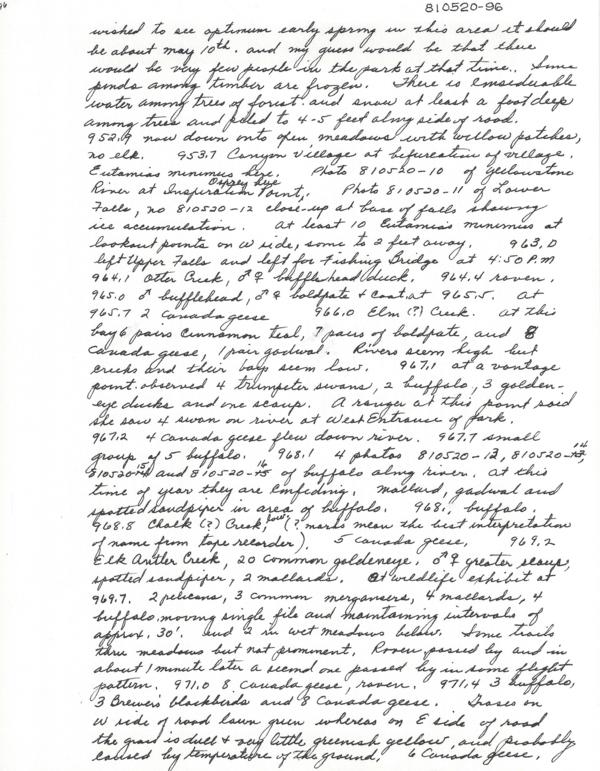 96
810520-96
wished to see optimum early spring in this area it should
be about may 10th. and my guess would be that there
would be very few people in the park at that time. Some
ponds among timber are frozen. There is considerable
water among trees of forest. and snow at least a foot deep
among trees and piled to 4-5 feet along side of road.
952.9 now down onto open meadows with willow patches,
no elk. 953.7 Canyon Village at bifurcation of village.
Eutamias minimus here. Photo 810520-10 of Yellowstone
River at Inspiration Point, Osprey here Photo 810520-11 of Lower
Falls, no 810520-12 close-up at base of falls showing
ice accumulation. At least 10 Eutamias minimus at
lookout points on W side, some to 2 feet away. 963.0
left Upper Falls and left for Fishing Bridge at 4:50 P.M
964.1 Otter Creek, ♂♀ bufflehead duck. 964.4 raven.
965.0 ♂ bufflehead, ♂♀ baldpate & Coot. at 965.5. At
965.7 2 Canada geese 966.0 Elm (?) Creek. at this
bay 6 pairs Cinnamon teal, 7 pairs of baldpate, and 8
Canada geese, 1 pair gadwal. Rivers seem high but
creeks and their bays seem low. 967.1 at a vantage
point observed 4 trumpeter swans, 2 buffalo, 3 golden-
eye ducks and one scaup. A ranger at this point said
she saw 4 swan on river at West Entrance of park.
967.2 4 Canada geese flew down river. 967.7 small
group of 5 buffalo. 968.1 4 photos 810520-13, 810520-14,
810520-15 and 810520-16 of buffalo along river. At this
time of year they are confiding. mallard, gadwal and
spotted sandpiper in area of buffalo. 968., buffalo.
968.8 Chalk (?) Creek, (? marks mean the best interpretation
of name from tape recorder). 5 Canada geese, 969.2
Elk Antler Creek, 20 common goldeneye. ♂♀ greater scaup,
spotted sandpiper, 2 mallards. At wildlife exhibit at
969.7. 2 pelicans, 3 common mergansers, 4 mallards, 4
buffalo, moving single file and maintaining intervals of
approx. 30'. and 2 in wet meadows below. Some trails
thru meadows but not prominent. Raven passed by and in
about 1 minute later a second one passed by in same flight
pattern. 971.0 8 Canada geese, raven. 971.4 3 buffalo,
3 Brewers blackbirds and 8 Canada geese. Grass on
W side of road lawn green whereas on E side of road
the grass is dull & very little greenish yellow, and probably
caused by temperature of the ground. 6 Canada geese,